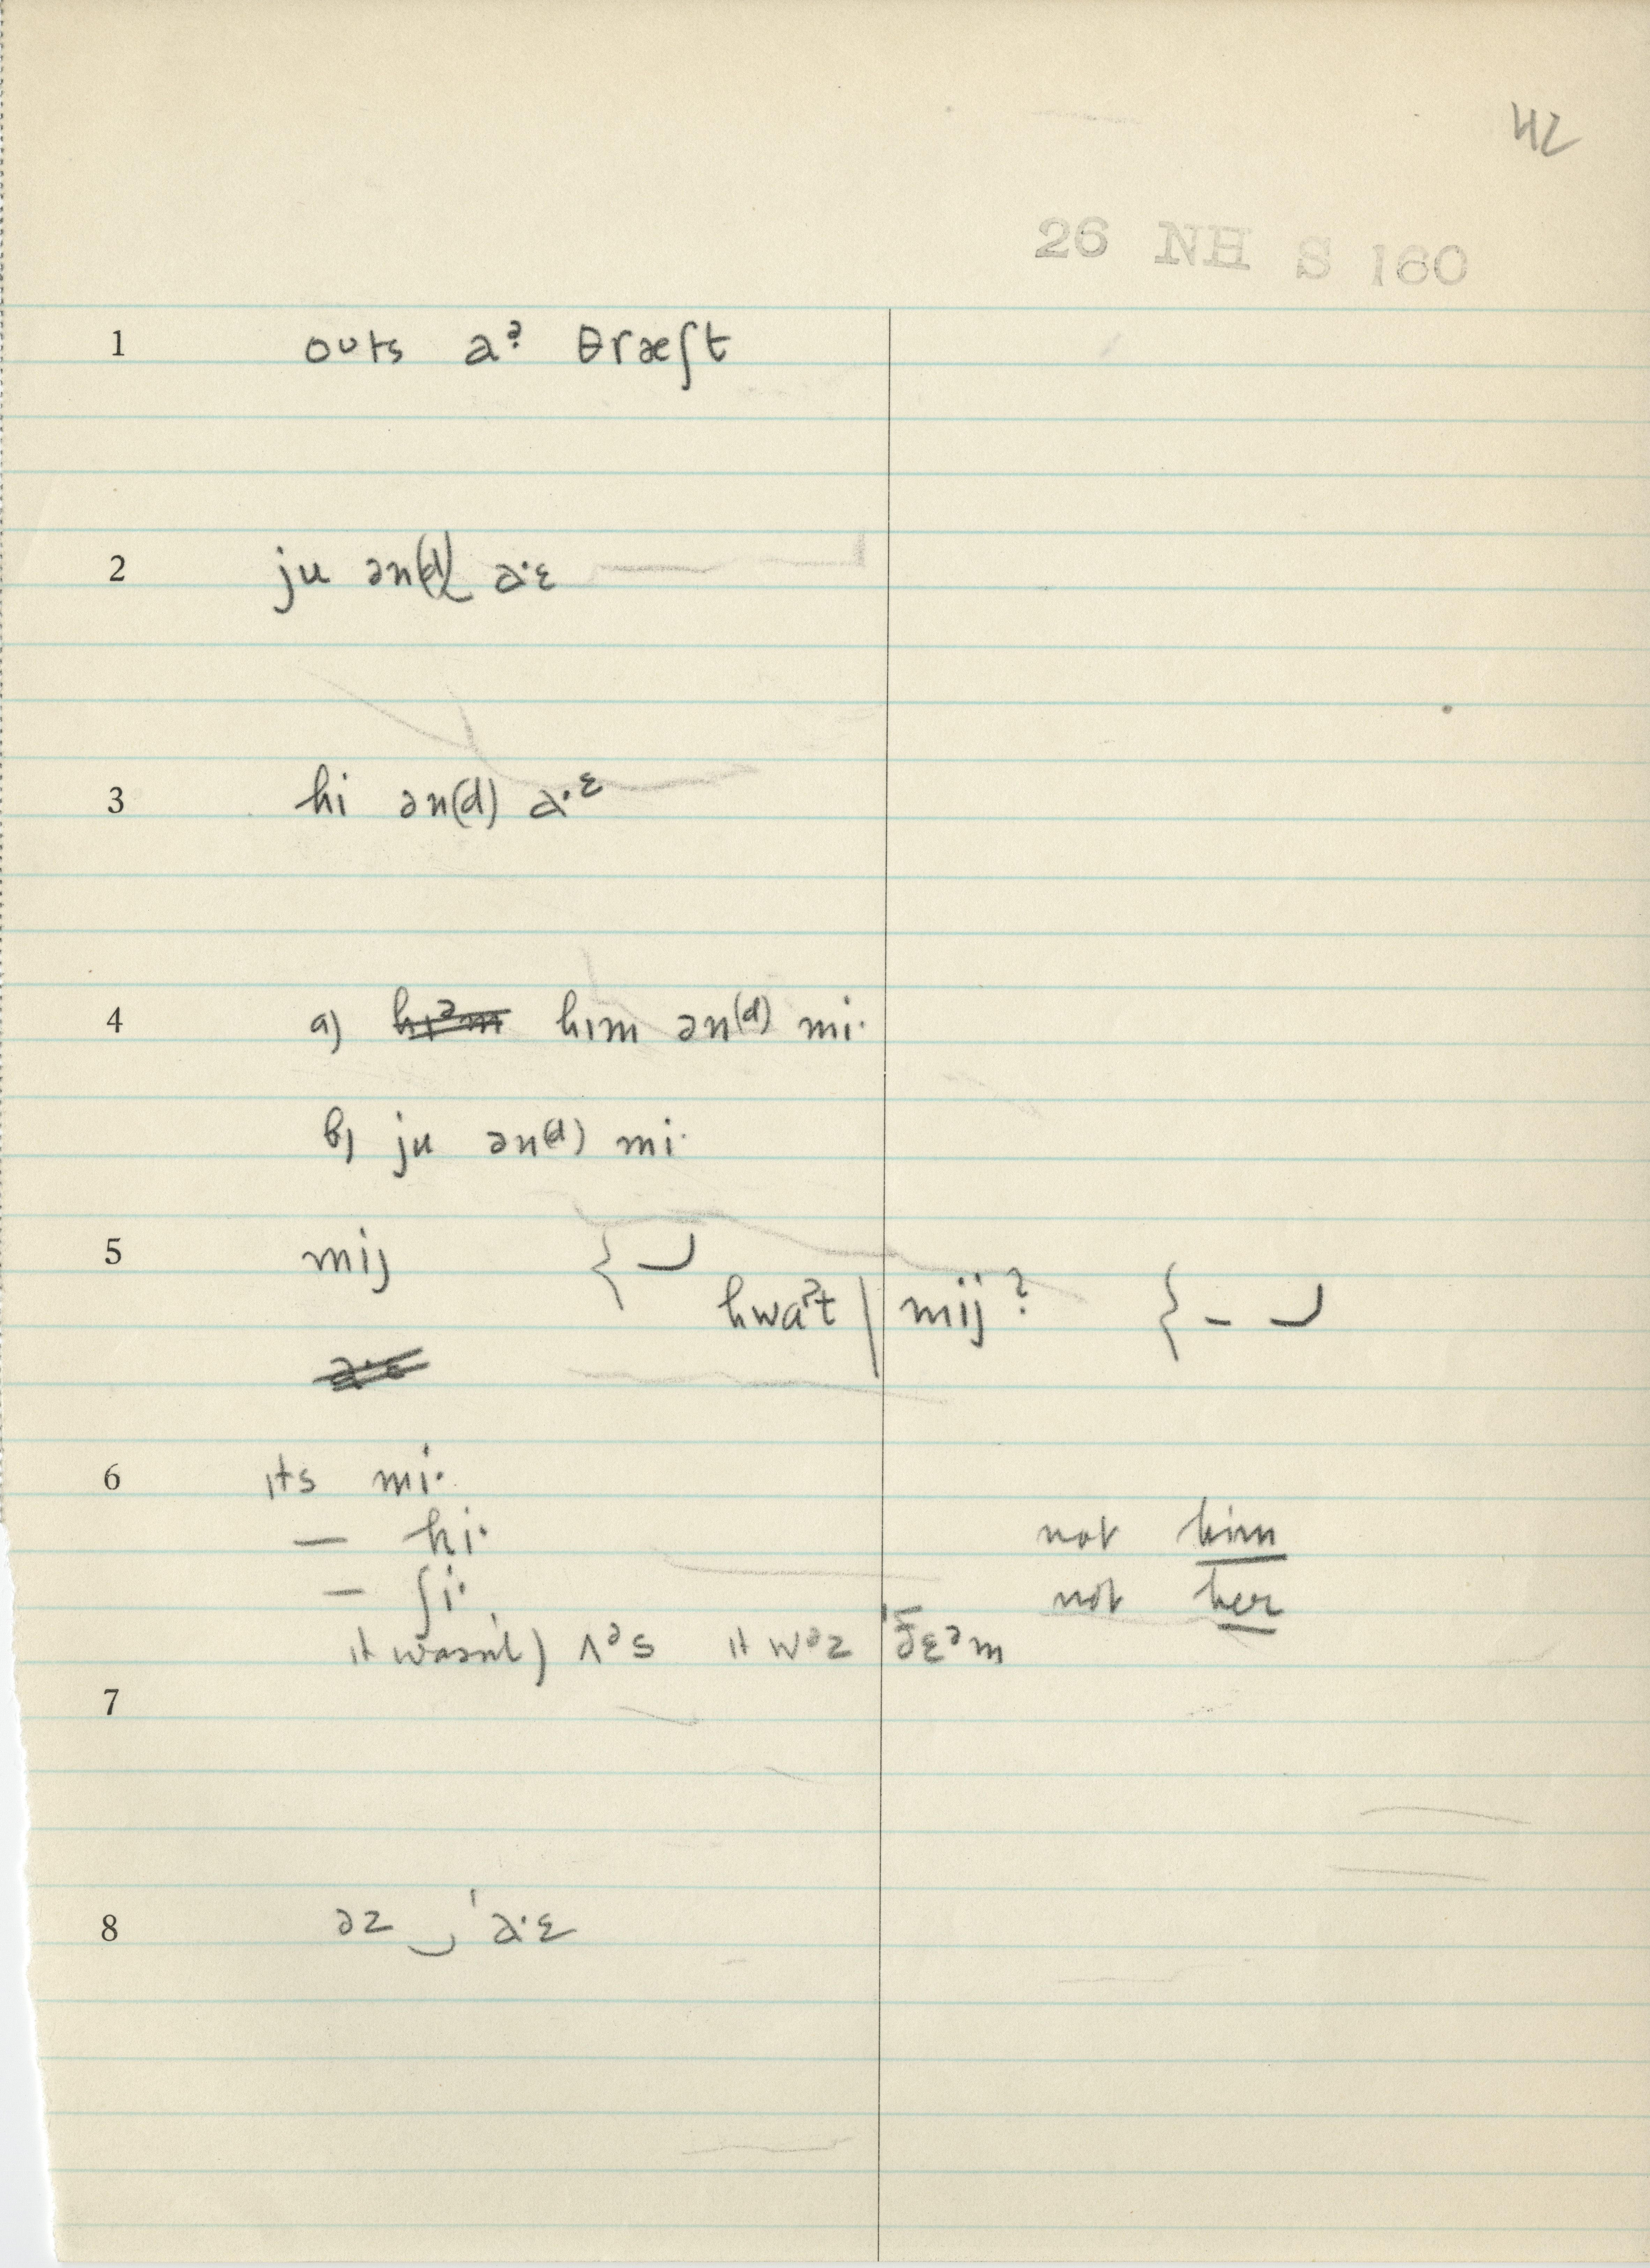 42
26 NH S 160
1 oʊts aᵊ θræʃt
2 ju ən(d) a·ɛ
3 hi ən(d) a·ᵋ
4 a) hɪᵊm hɪm ən(d) mi·
b) ju ən(d) mi·
5 mij
hwaᵊt | mij?
a·ɛ
6 ɪts mi·
— hi· not him
— ʃi· not her
it wasn't) ʌᵊs ɪt wəz ðɛᵊm
7
8 əz ‿ 'a·ɛ